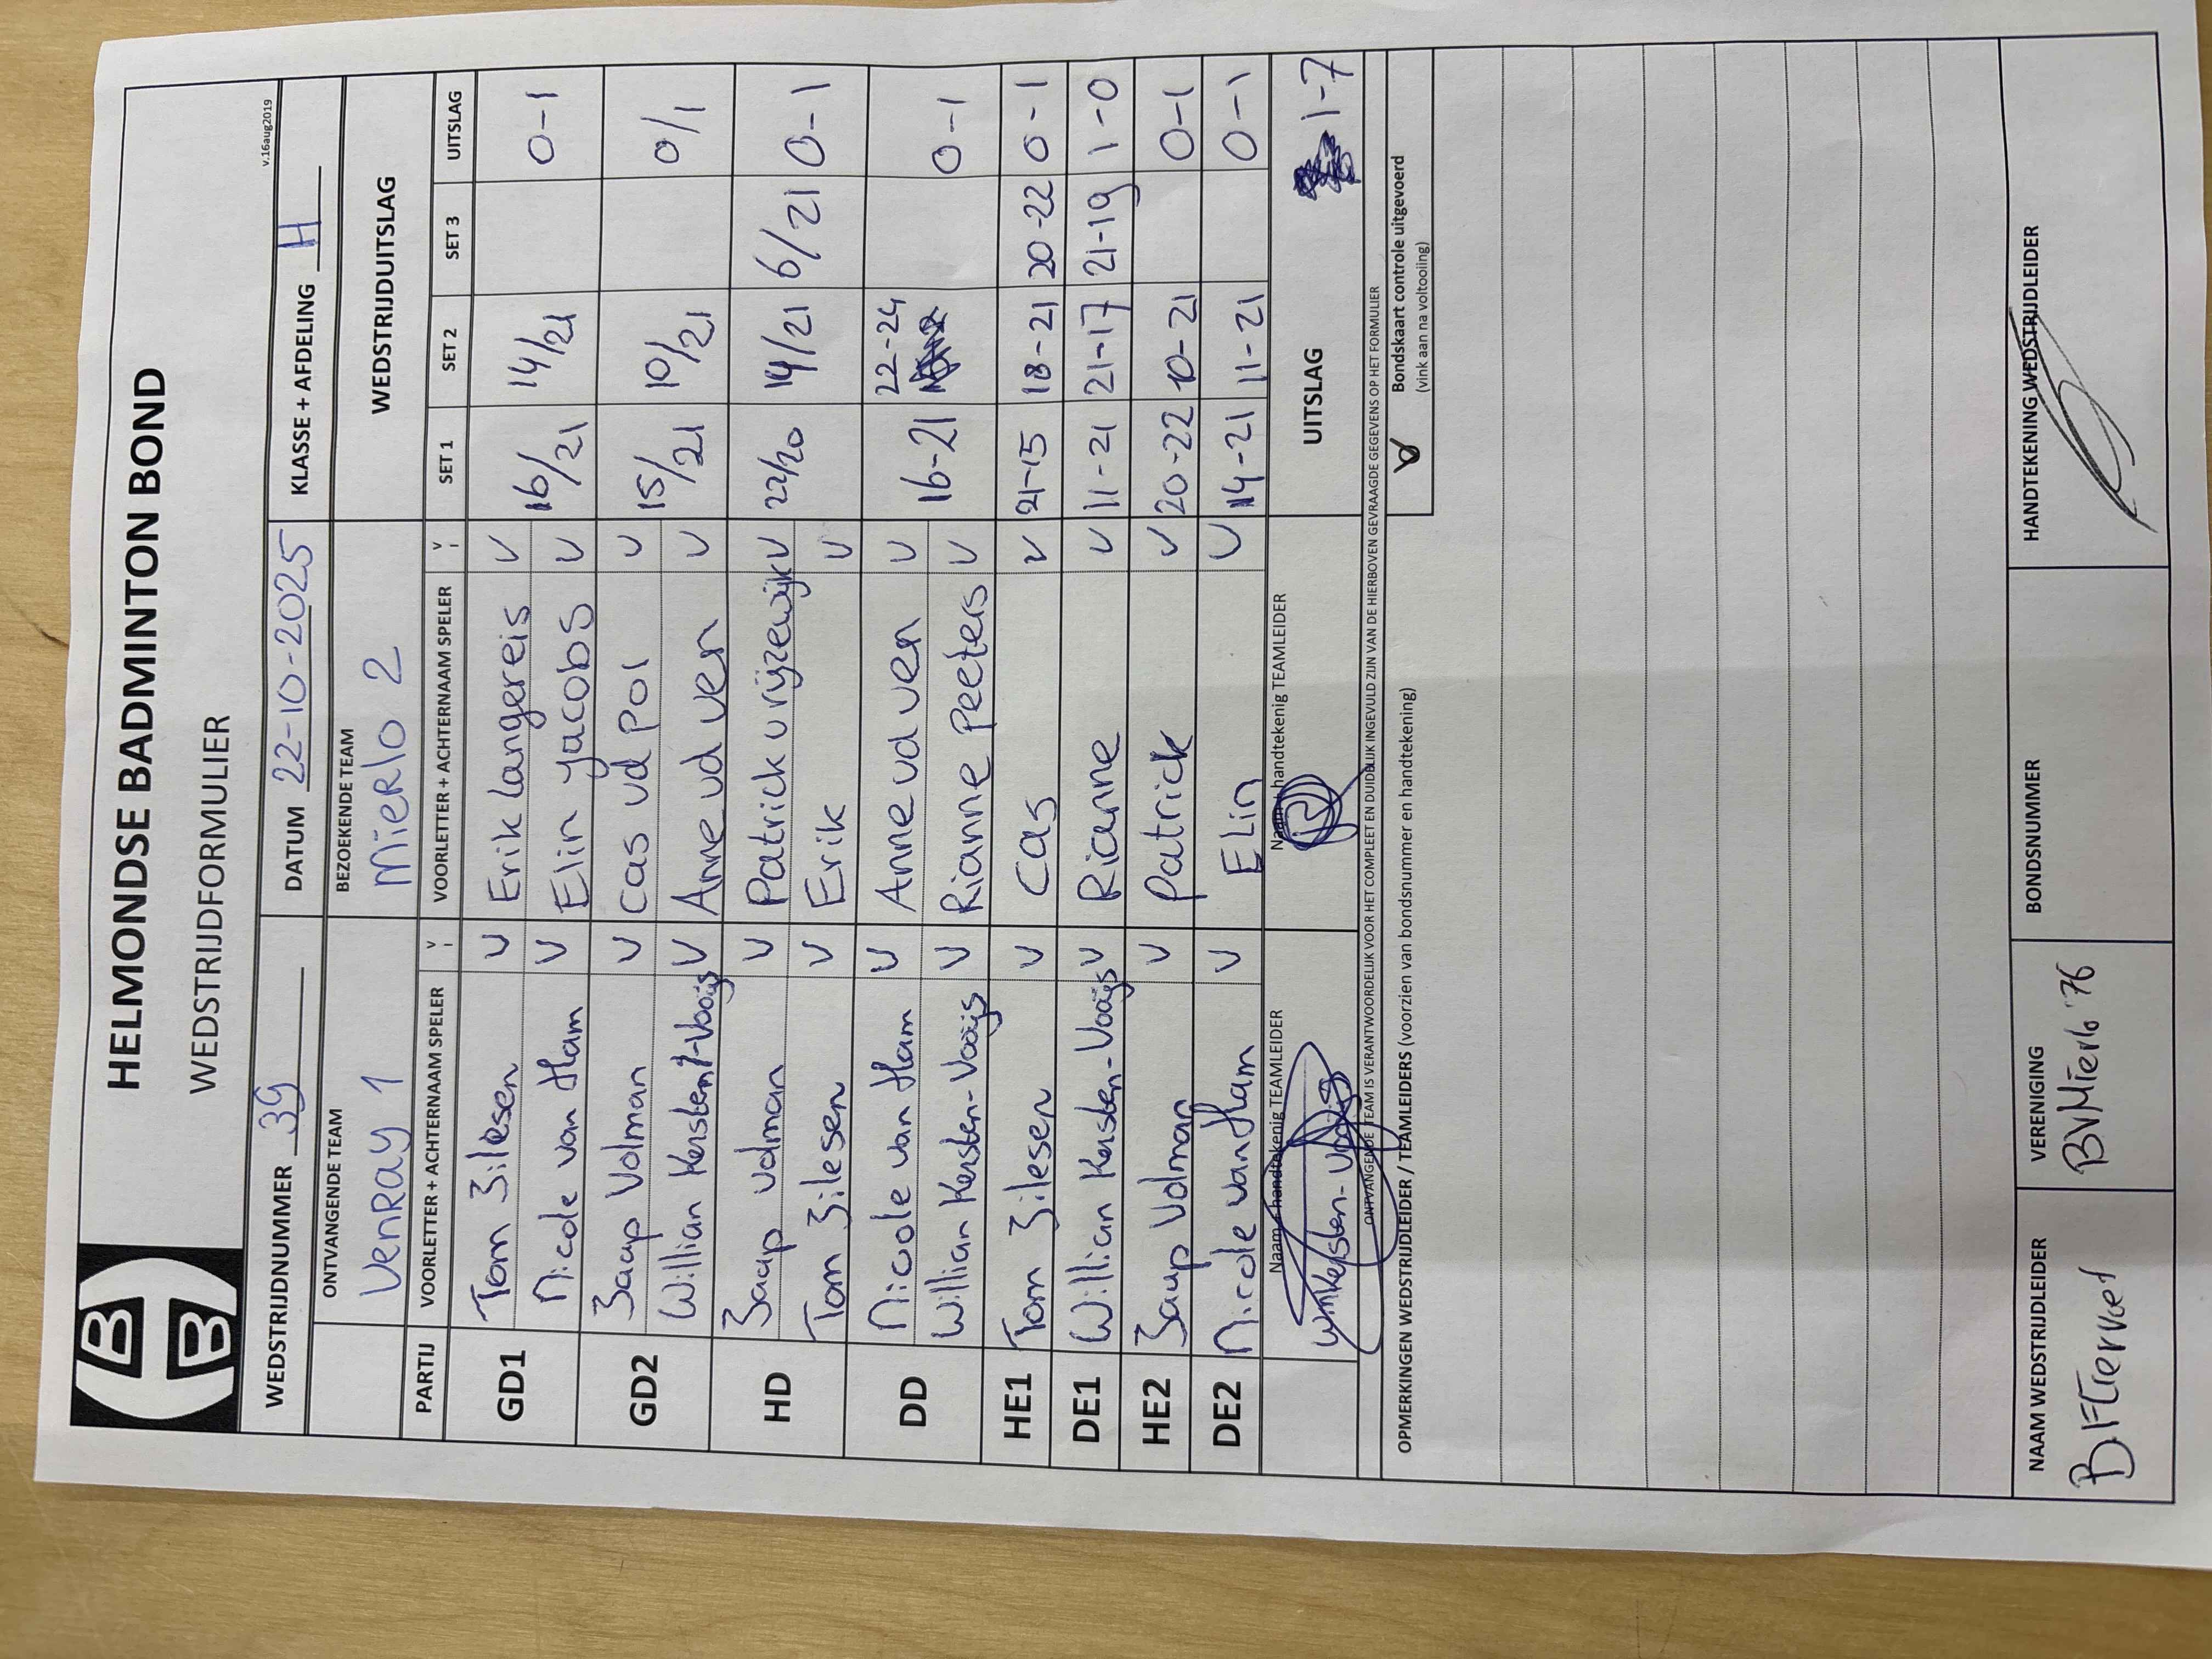 HELMONDSE BADMINTON BOND
WEDSTRIJDFORMULIER
v.16aug2019
WEDSTRIJDNUMMER 39 DATUM 22-10-2025 KLASSE + AFDELING H
ONTVANGENDE TEAM BEZOEKENDE TEAM WEDSTRIJDUITSLAG
Venray 1 Mierlo 2
PARTIJ VOORLETTER + ACHTERNAAM SPELER V VOORLETTER + ACHTERNAAM SPELER V SET 1 SET 2 SET 3 UITSLAG
GD1 Tom Jilesen V Erik Langereis V 16/21 14/21 0-1
Nicole van Ham V Elin Yacobs V
GD2 Jaap Volman V Cas vd Pol V 15/21 10/21 0/1
Willian Kersten-Vooijs V Anne vd Ven V
HD Jaap Volman V Patrick Vrijzewijk V 22/20 14/21 6/21 0-1
Tom Jilesen V Erik V
DD Nicole van Ham V Anne vd Ven V 16-21 22-24 0-1
Willian Kersten-Vooijs V Rianne Peeters V
HE1 Tom Jilesen V Cas V 21-15 18-21 20-22 0-1
DE1 Willian Kersten-Vooijs V Rianne V 11-21 21-17 21-19 1-0
HE2 Jaap Volman V Patrick V 20-22 10-21 0-1
DE2 Nicole van Ham V Elin V 14-21 11-21 0-1
Naam + handtekenig TEAMLEIDER Naam + handtekenig TEAMLEIDER UITSLAG 1-7
W Kersten-Vooijs
ONTVANGENDE TEAM IS VERANTWOORDELIJK VOOR HET COMPLEET EN DUIDELIJK INGEVULD ZIJN VAN DE HIERBOVEN GEVRAAGDE GEGEVENS OP HET FORMULIER
OPMERKINGEN WEDSTRIJDLEIDER / TEAMLEIDERS (voorzien van bondsnummer en handtekening)
Bondskaart controle uitgevoerd
(vink aan na voltooiing)
NAAM WEDSTRIJDLEIDER VERENIGING BONDSNUMMER HANDTEKENING WEDSTRIJDLEIDER
BV Mierlo '76